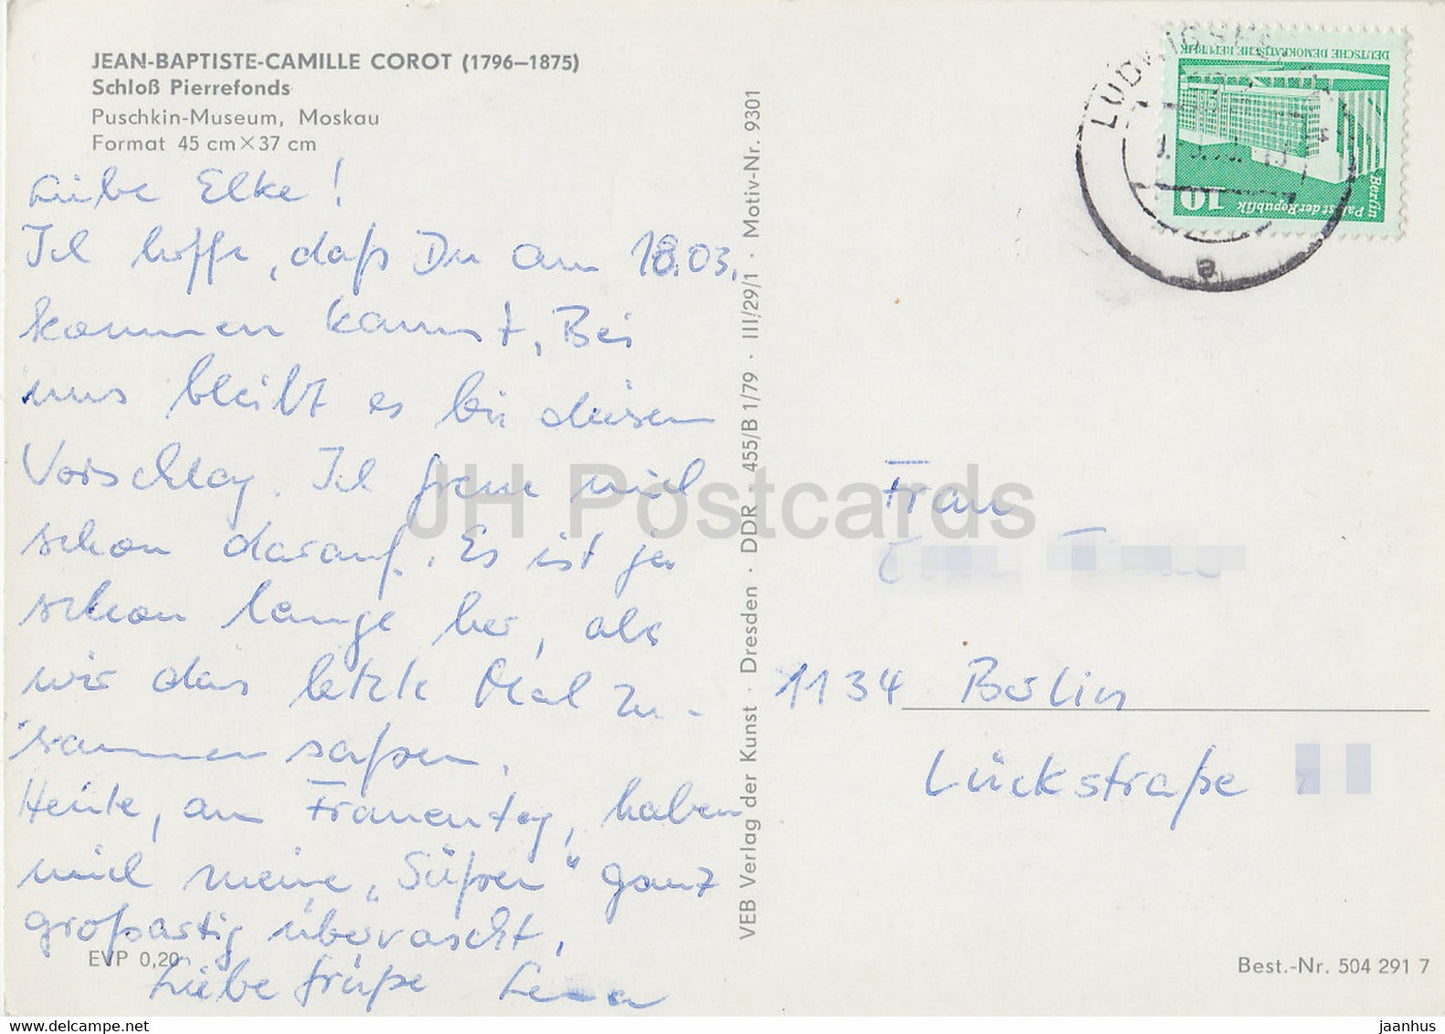 JEAN-BAPTISTE-CAMILLE COROT (1796–1875)
Schloß Pierrefonds
Puschkin-Museum, Moskau
Format 45 cm × 37 cm
Liebe Elke!
Ich hoffe, daß Du am 18.03.
kommen kannst. Bei
uns bleibt es bei diesem
Vorschlag. Ich freue mich
schon darauf. Es ist ja
schon lange her, als
wir das letzte Mal zu-
sammen saßen.
Heute, am Frauentag, haben
mich meine „Süßen" ganz
großartig überrascht.
Liebe Grüße Lena
EVP 0,20
VEB Verlag der Kunst · Dresden · DDR · 455/B 1/79 · III/29/1 · Motiv-Nr. 9301
DEUTSCHE DEMOKRATISCHE REPUBLIK
Berlin Palast der Republik
10
a
Frau
1134 Berlin
Lückstraße
Best.-Nr. 504 291 7
JH Postcards
https://www.jaanhus.com
jaanhus